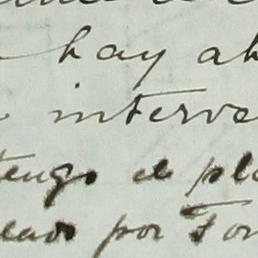 hay ab
interve
tengo el pla
eado por Tor